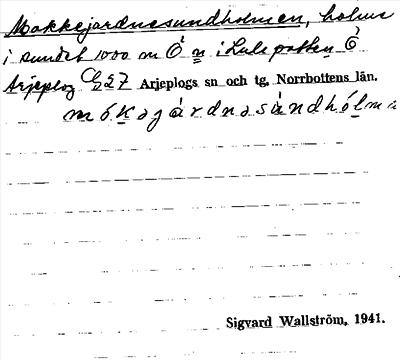 Mokkejardnesundholmen, holme
i sundet 1000 m Ö n i Lulepotten Ö
Arjeplog Cb 27 Arjeplogs sn och tg, Norrbottens län.
mókǝgàrdnǝsúndhólmǝ
Sigvard Wallström, 1941.